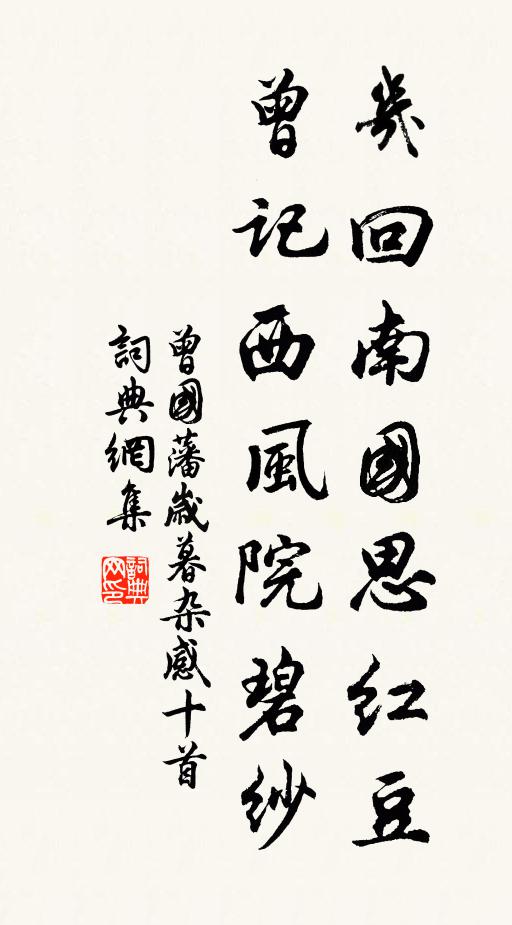 幾回南國思红豆
曾记西風院碧紗
曾國藩歲暮杂感十首
詞典網集
詞典网印